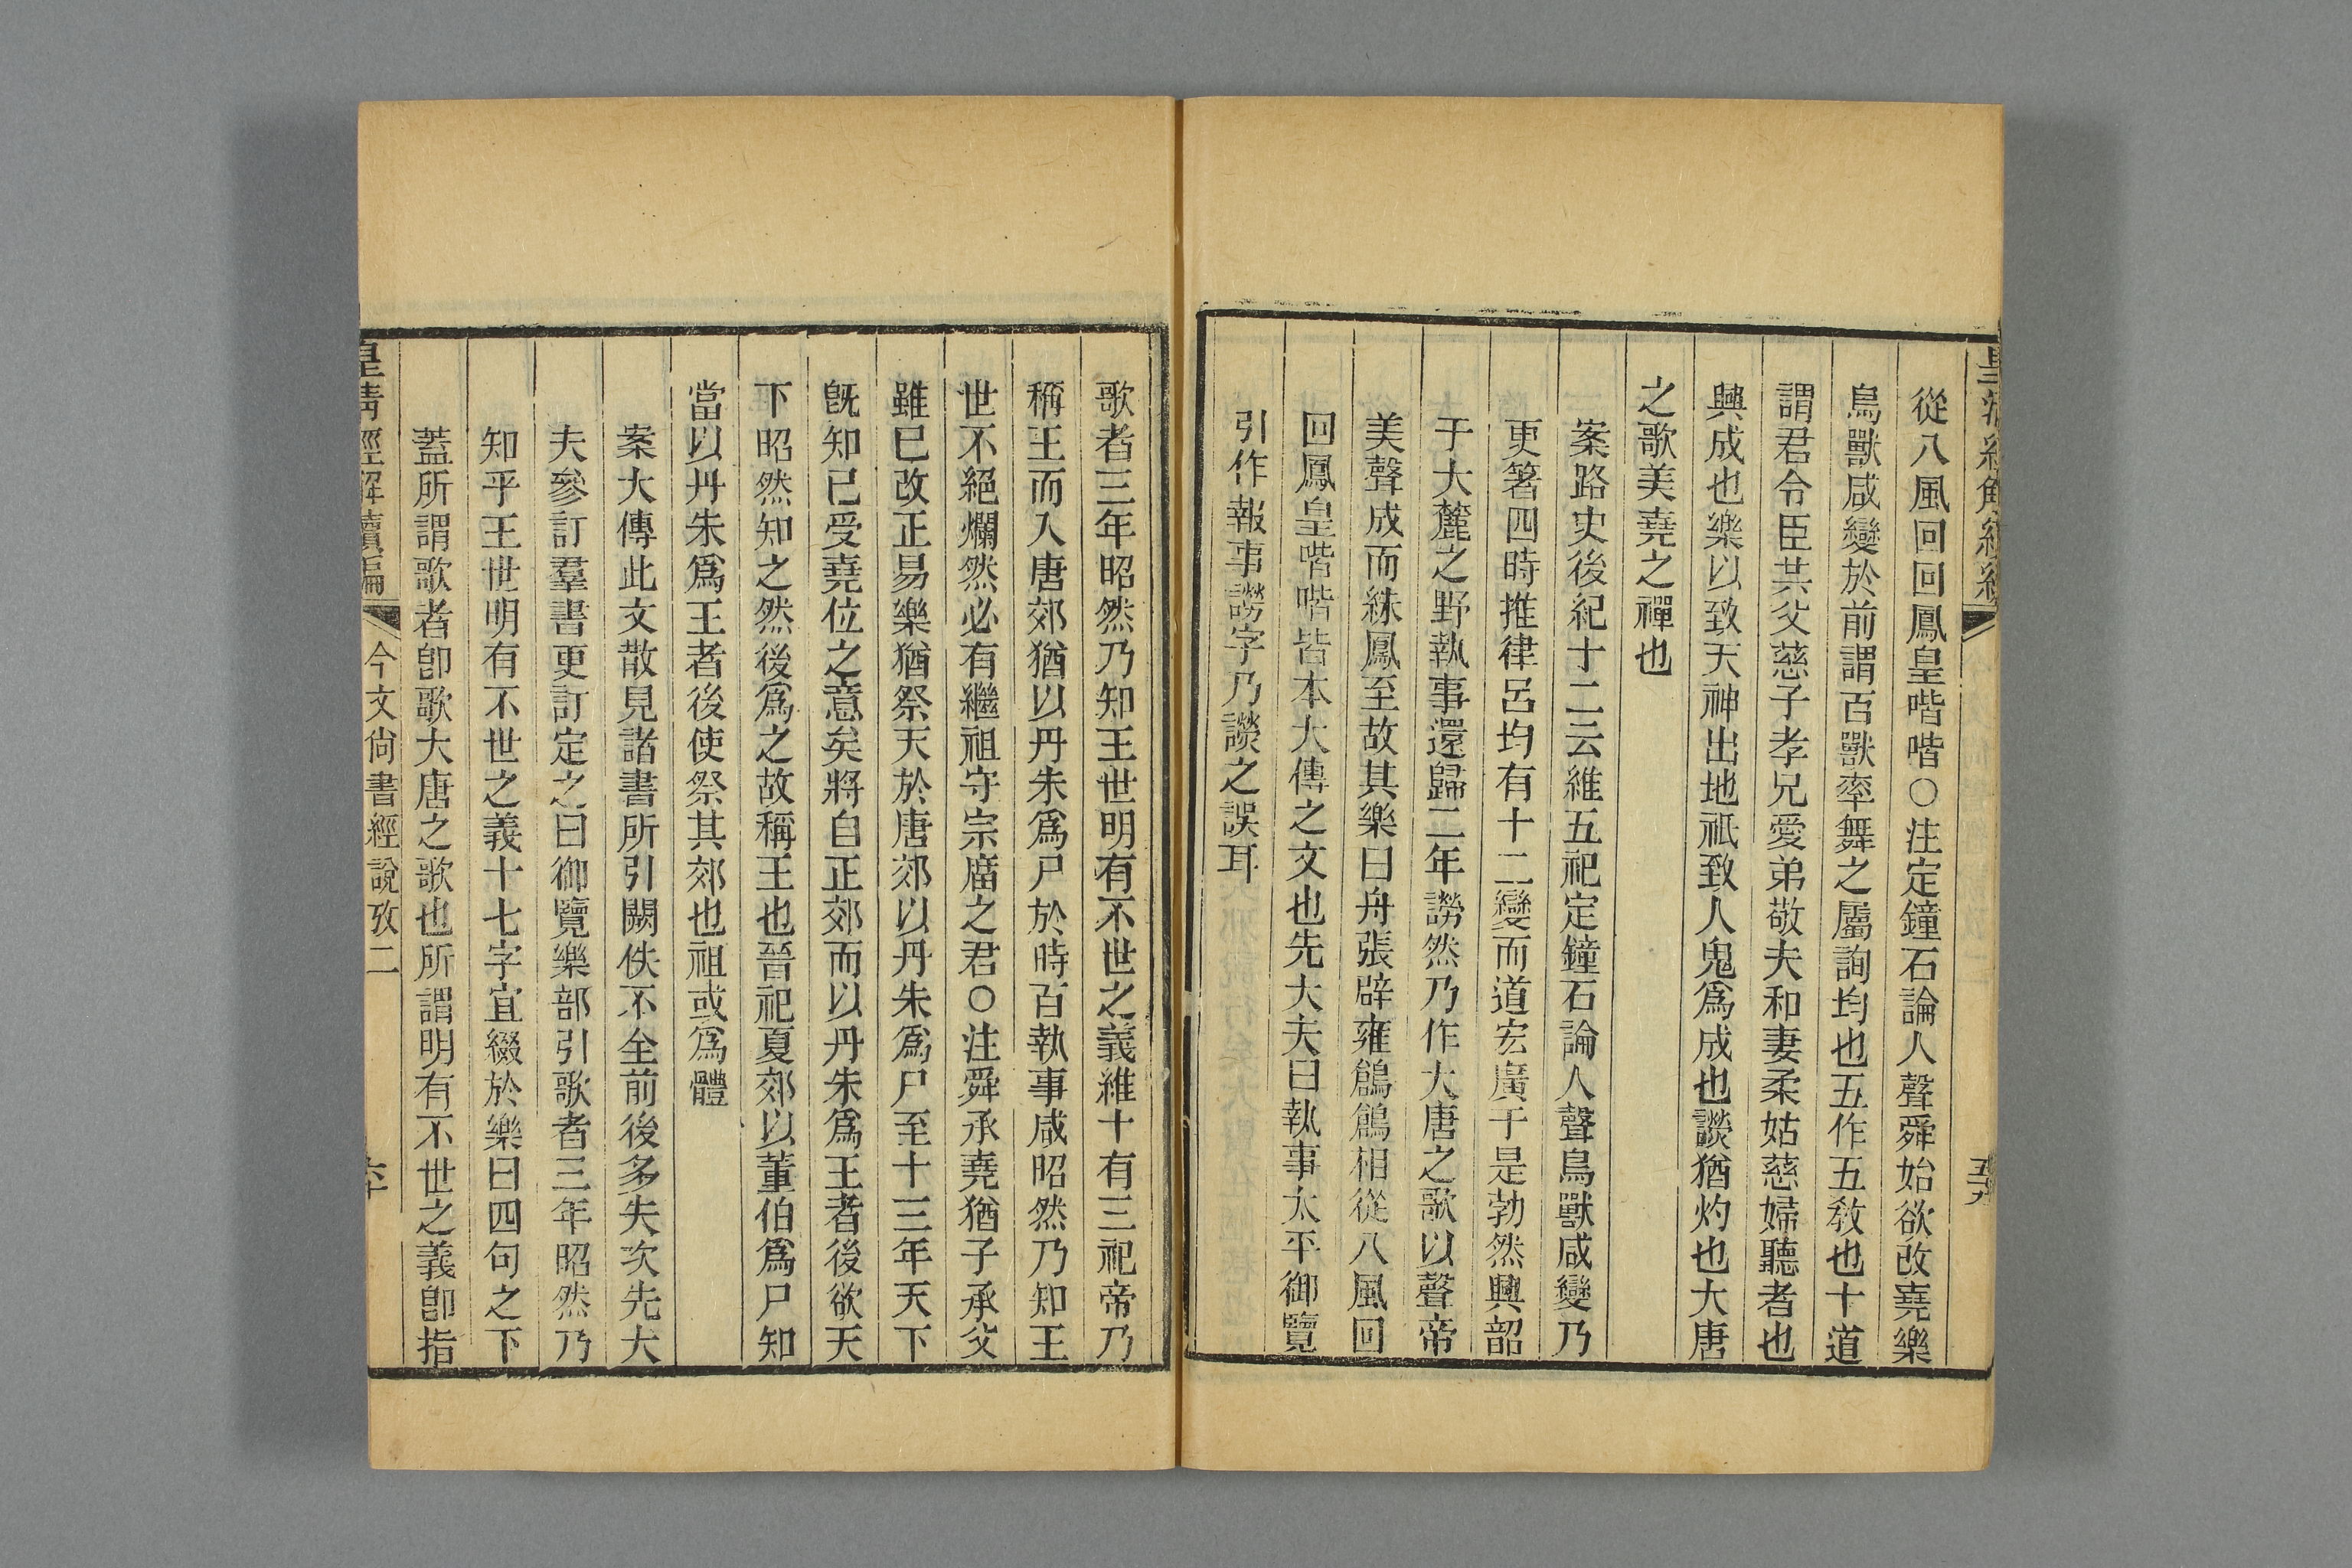 從八風回回鳳皇喈喈○注定鐘石論人聲舜始欲改堯樂
鳥獸咸變於前謂百獸率舞之屬詢均也五作五教也十道
謂君令臣共父慈子孝兄愛弟敬夫和妻柔姑慈婦聽者也
興成也樂以致天神出地祇致人鬼爲成也㷼猶灼也大唐
之歌美堯之禪也
案路史後紀十二云維五祀定鐘石論人聲鳥獸咸變乃
更箸四時推律呂均有十二變而道宏廣于是勃然興韶
于大麓之野執事還歸二年䜍然乃作大唐之歌以聲帝
美聲成而絑鳳至故其樂曰舟張辟雍鶬鶬相從八風回
回鳳皇喈喈皆本大傳之文也先大夫曰執事太平御覽
引作報事䜍字乃㷼之誤耳
歌者三年昭然乃知王世明有不世之義維十有三祀帝乃
稱王而入唐郊猶以丹朱爲尸於時百執事咸昭然乃知王
世不絕爛然必有繼祖守宗廟之君○注舜承堯猶子承父
雖已改正易樂猶祭天於唐郊以丹朱爲尸至十三年天下
旣知已受堯位之意矣將自正郊而以丹朱爲王者後欲天
下昭然知之然後爲之故稱王也晉祀夏郊以董伯爲尸知
當以丹朱爲王者後使祭其郊也祖或爲體
案大傳此文散見諸書所引闕佚不全前後多失次先大
夫參訂羣書更訂定之曰御覽樂部引歌者三年昭然乃
知乎王世明有不世之義十七字宜綴於樂曰四句之下
蓋所謂歌者卽歌大唐之歌也所謂明有不世之義卽指
皇清經解續編
今文尙書經說攷二